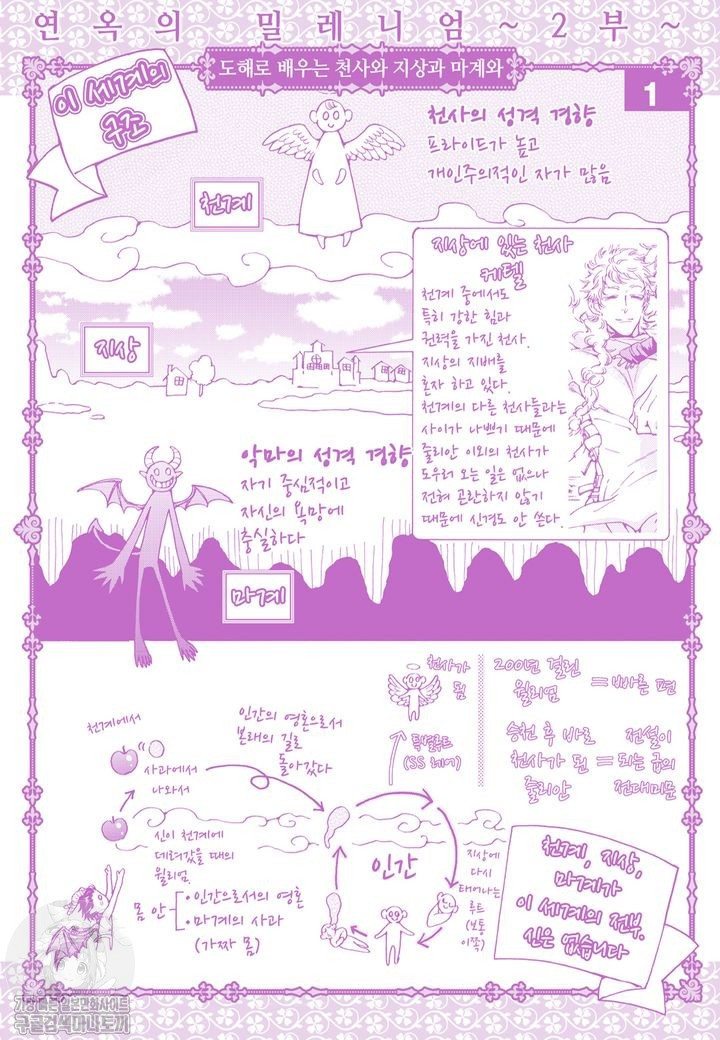 연옥의 밀레니엄~2부~
도해로 배우는 천사와 지상과 마계와
1
이 세계의
구조
천사의 성격 경향
프라이드가 높고
개인주의적인 자가 많음
천계
지상에 있는 천사
케텔
천계 중에서도
특히 강한 힘과
권력을 가진 천사.
지상의 지배를
혼자 하고 있다.
천계의 다른 천사들과는
사이가 나쁘기 때문에
줄리안 이외의 천사가
도우러 오는 일은 없으나
전혀 곤란하지 않기
때문에 신경도 안 쓴다.
지상
악마의 성격 경향
자기 중심적이고
자신의 욕망에
충실하다
마계
천사가
됨
특별루트
(SS 레어)
200년 걸린
윌리엄
=빠른 편
승천 후 바로
천사가 된
줄리안
=
전설이
되는 급의
전대미문
천계에서
사과에서
나와서
인간의 영혼으로서
본래의 길로
돌아갔다
신이 천계에
데려갔을 때의
윌리엄.
몸 안
·인간으로서의 영혼
·마계의 사과
(가짜 몸)
인간
지상에
다시
태어나는
루트
(보통
이쪽)
천계, 지상,
마계가
이 세계의 전부.
신은 없습니다
가장 빠른 일본만화사이트
구글검색마나토끼